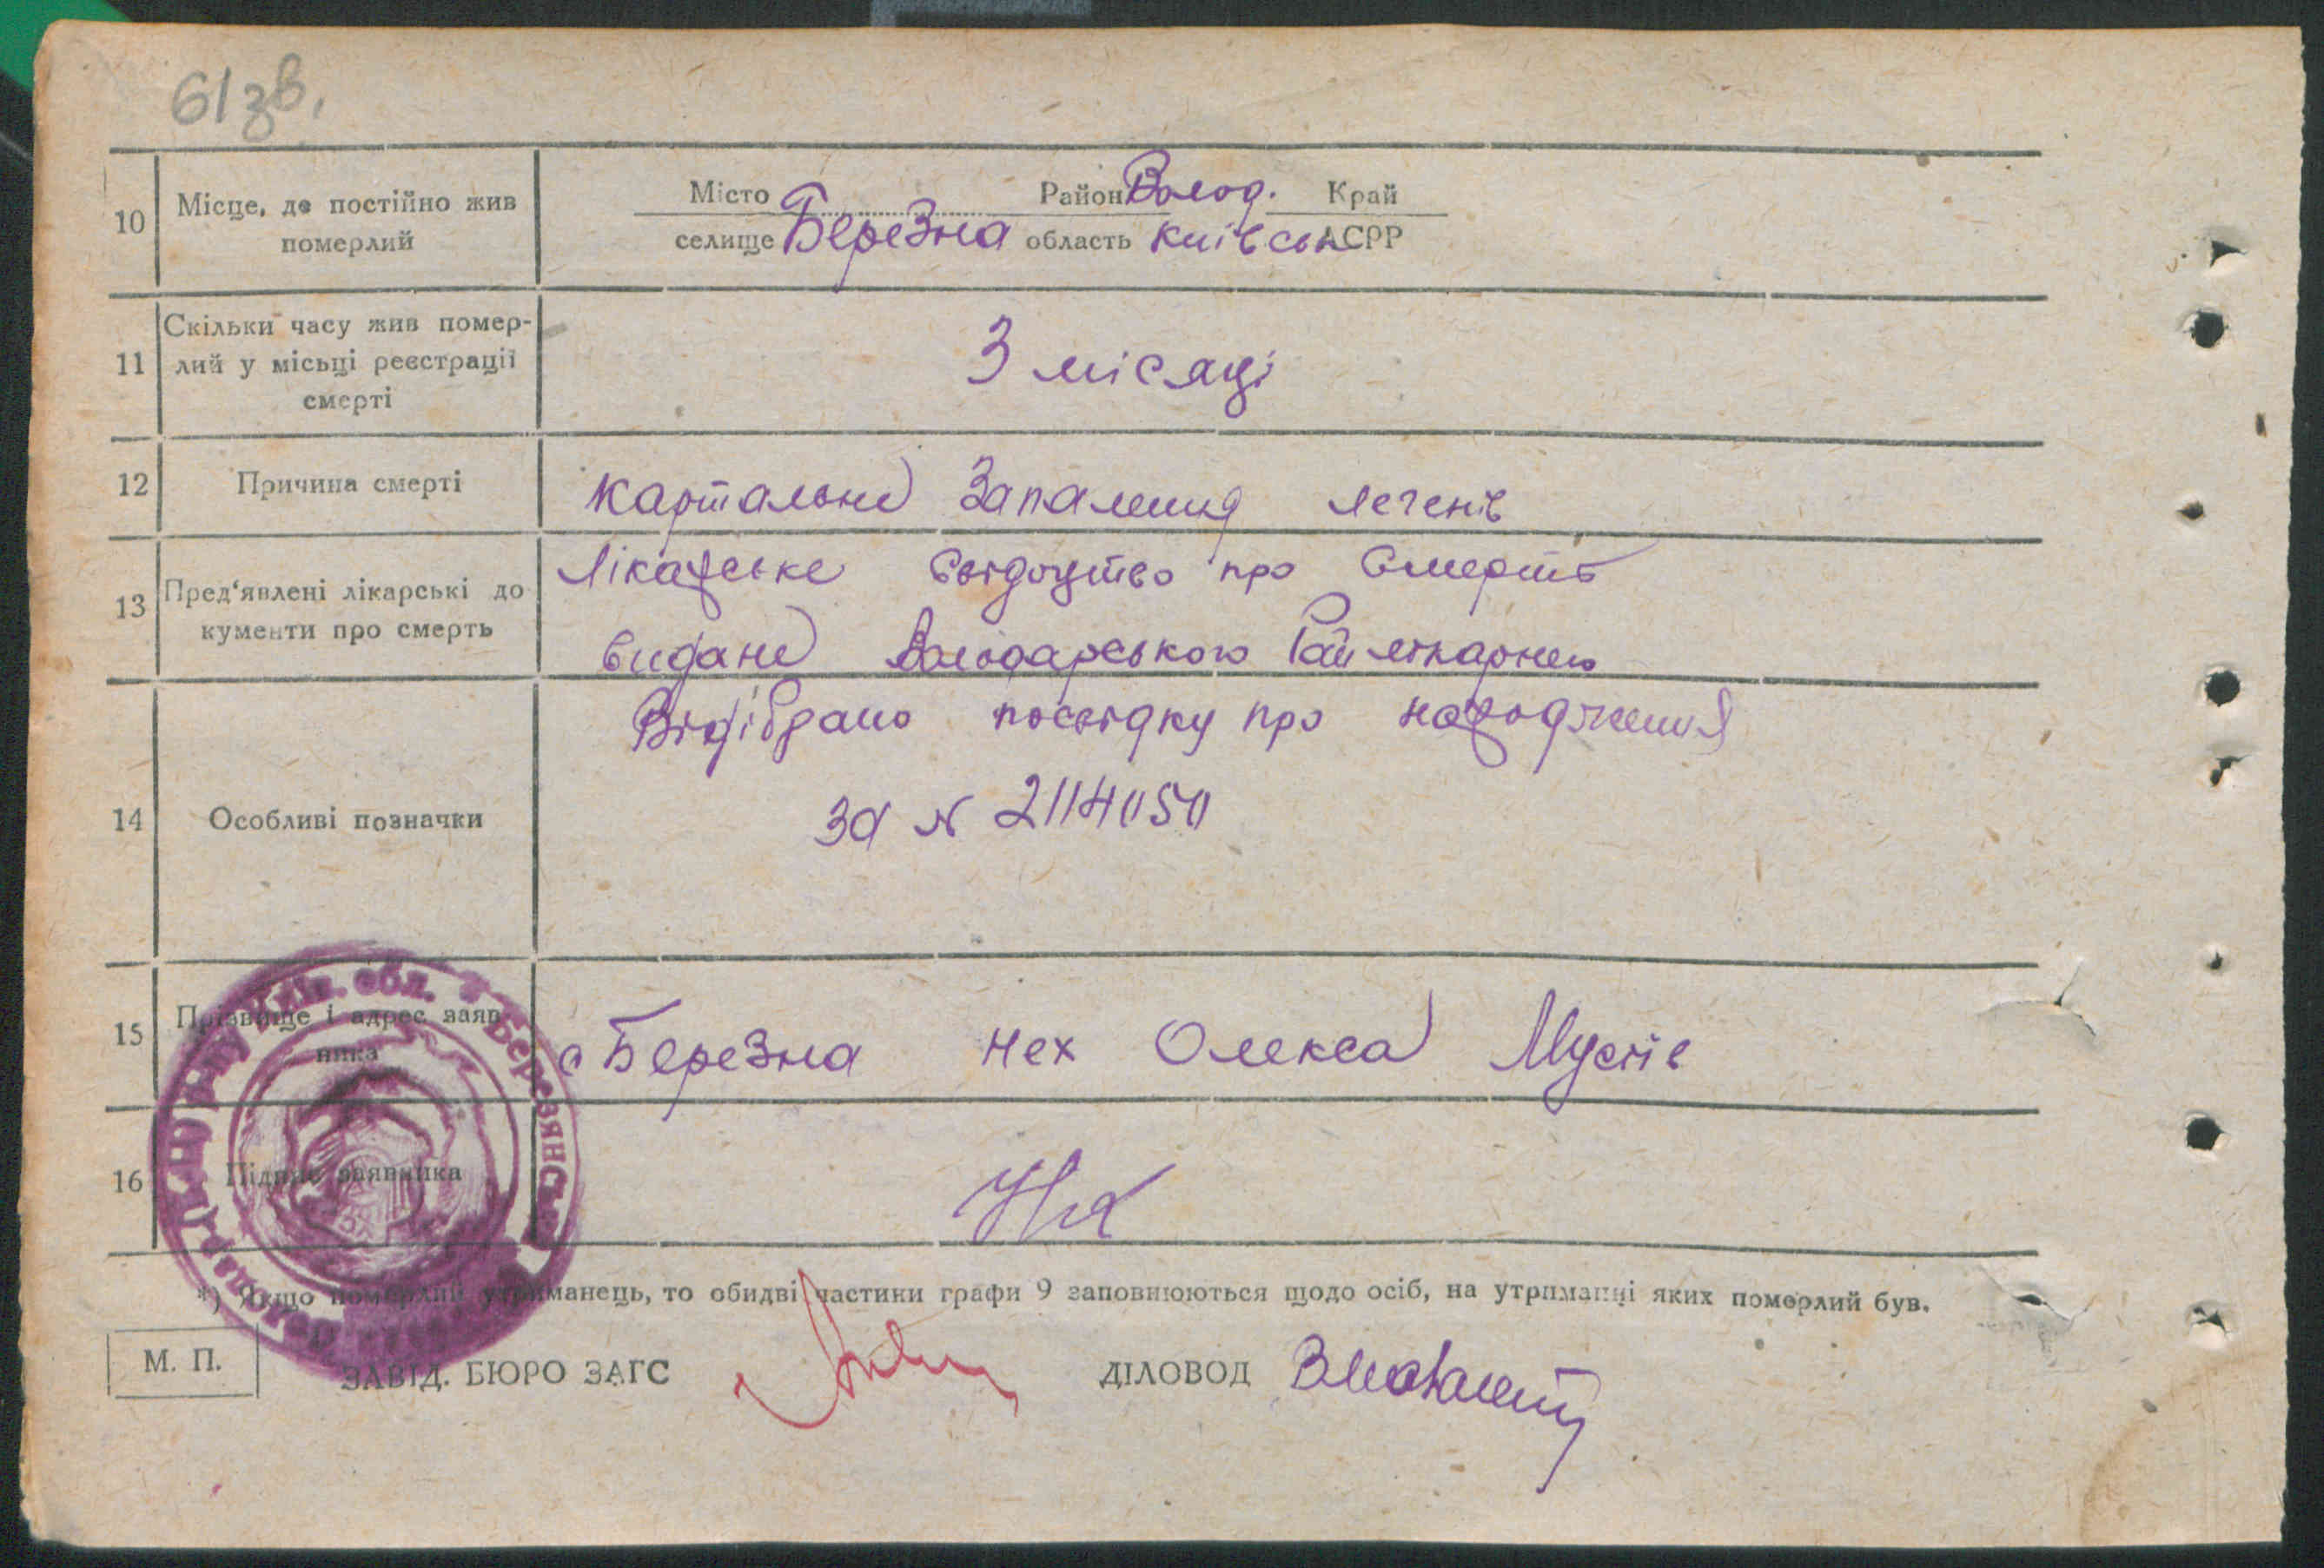 61зв.
10 Місце, де постійно жив Місто Район Волод. Край
померлий селище Березна область Київськ АСРР
11 Скільки часу жив помер-
лий у місьці реєстрації 3 місяці
смерті
12 Причина смерті Картальне Запалення легенів
13 Пред'явлені лікарські до Лікарське свідоцтво про смерть
кументи про смерть видане Володарською Райлікарнею
Відібрано посвідку про народження
14 Особливі позначки за № 2114050
15 Прізвище і адрес заяв
ника с Березна Нех Олекса Мусіїв
16 Підпис заявника
*) Якщо померлий утриманець, то обидві частини графи 9 заповнюються щодо осіб, на утриманці яких померлий був.
М. П. ЗАВІД. БЮРО ЗАГС ДІЛОВОД